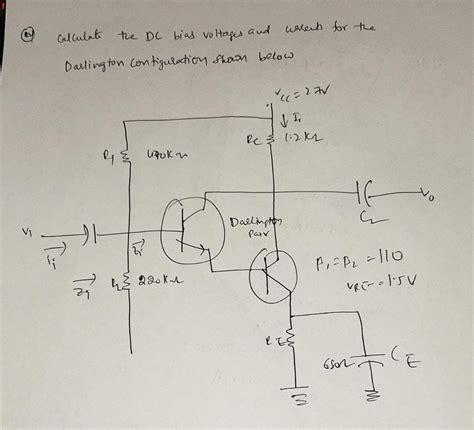 Calculate the DC bias voltages and currents for the
Darlington Configuration shown below
Vcc = 27V
↓ I1
Rc 1.2 KΩ
R1 470KΩ
Vi
Ii
Darlington
Pair
C2
Vo
R2 220KΩ
β1 = β2 = 110
VBE = 1.5V
RE
680Ω
CE